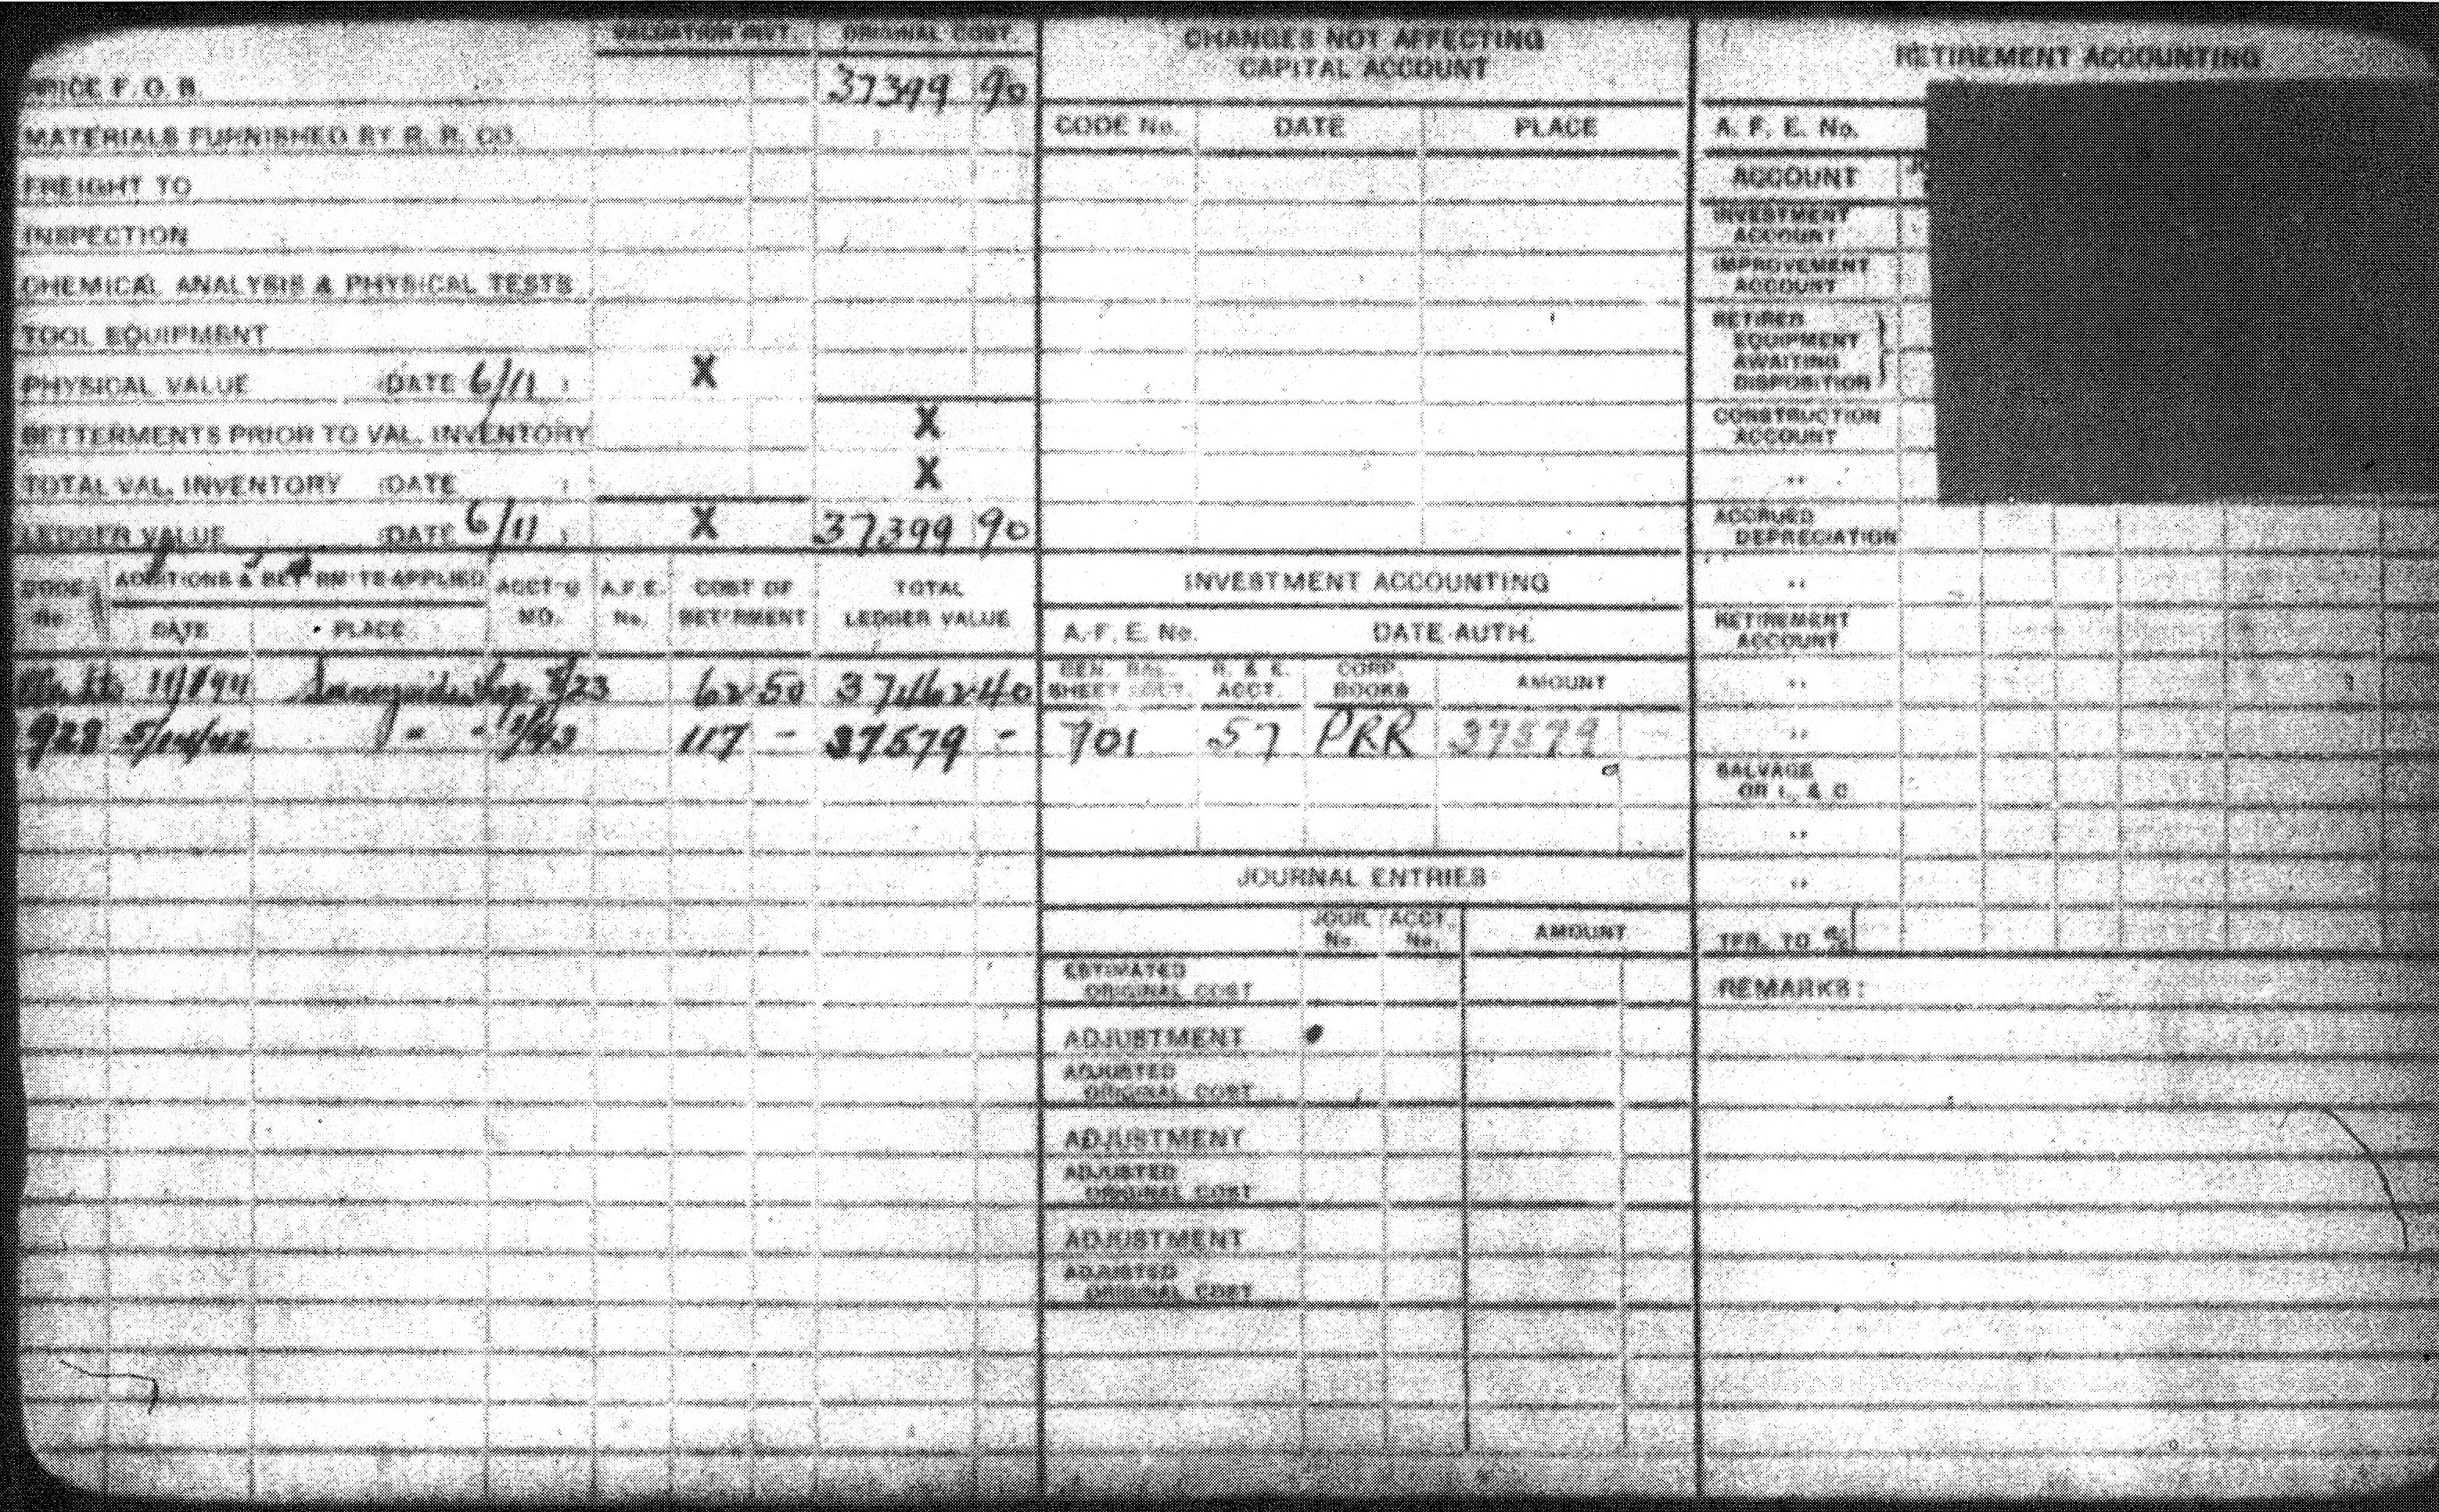 VALUATION INVT. ORIGINAL COST.
PRICE F. O. B. 37399 90
MATERIALS FURNISHED BY R. R. CO.
FREIGHT TO
INSPECTION
CHEMICAL ANALYSIS & PHYSICAL TESTS
TOOL EQUIPMENT
PHYSICAL VALUE (DATE 6/11 ) X
BETTERMENTS PRIOR TO VAL. INVENTORY X
TOTAL VAL. INVENTORY (DATE ) X
LEDGER VALUE (DATE 6/11 ) X 37399 90
CODE No. ADDITIONS & BET'RM'TS APPLIED ACCT'G MO. A.F.E. No. COST OF BET'RMENT TOTAL LEDGER VALUE
DATE PLACE
8/23 62 50 37462 40
928 5/14/42 " " 1/43 117 - 37579 -
CHANGES NOT AFFECTING
CAPITAL ACCOUNT
CODE No. DATE PLACE
INVESTMENT ACCOUNTING
A. F. E. No. DATE AUTH.
GEN. BAL. SHEET ACCT. R. & E. ACCT. CORP. BOOKS AMOUNT
701 57 PRR 37579
JOURNAL ENTRIES
JOUR. No. ACCT. No. AMOUNT
ESTIMATED
ORIGINAL COST
ADJUSTMENT
ADJUSTED
ORIGINAL COST
ADJUSTMENT
ADJUSTED
ORIGINAL COST
ADJUSTMENT
ADJUSTED
ORIGINAL COST
RETIREMENT ACCOUNTING
A. F. E. No.
ACCOUNT
INVESTMENT
ACCOUNT
IMPROVEMENT
ACCOUNT
RETIRED
EQUIPMENT
AWAITING
DISPOSITION
CONSTRUCTION
ACCOUNT
"
ACCRUED
DEPRECIATION
"
RETIREMENT
ACCOUNT
"
"
SALVAGE
OR L. & D.
"
"
TFR. TO %
REMARKS: